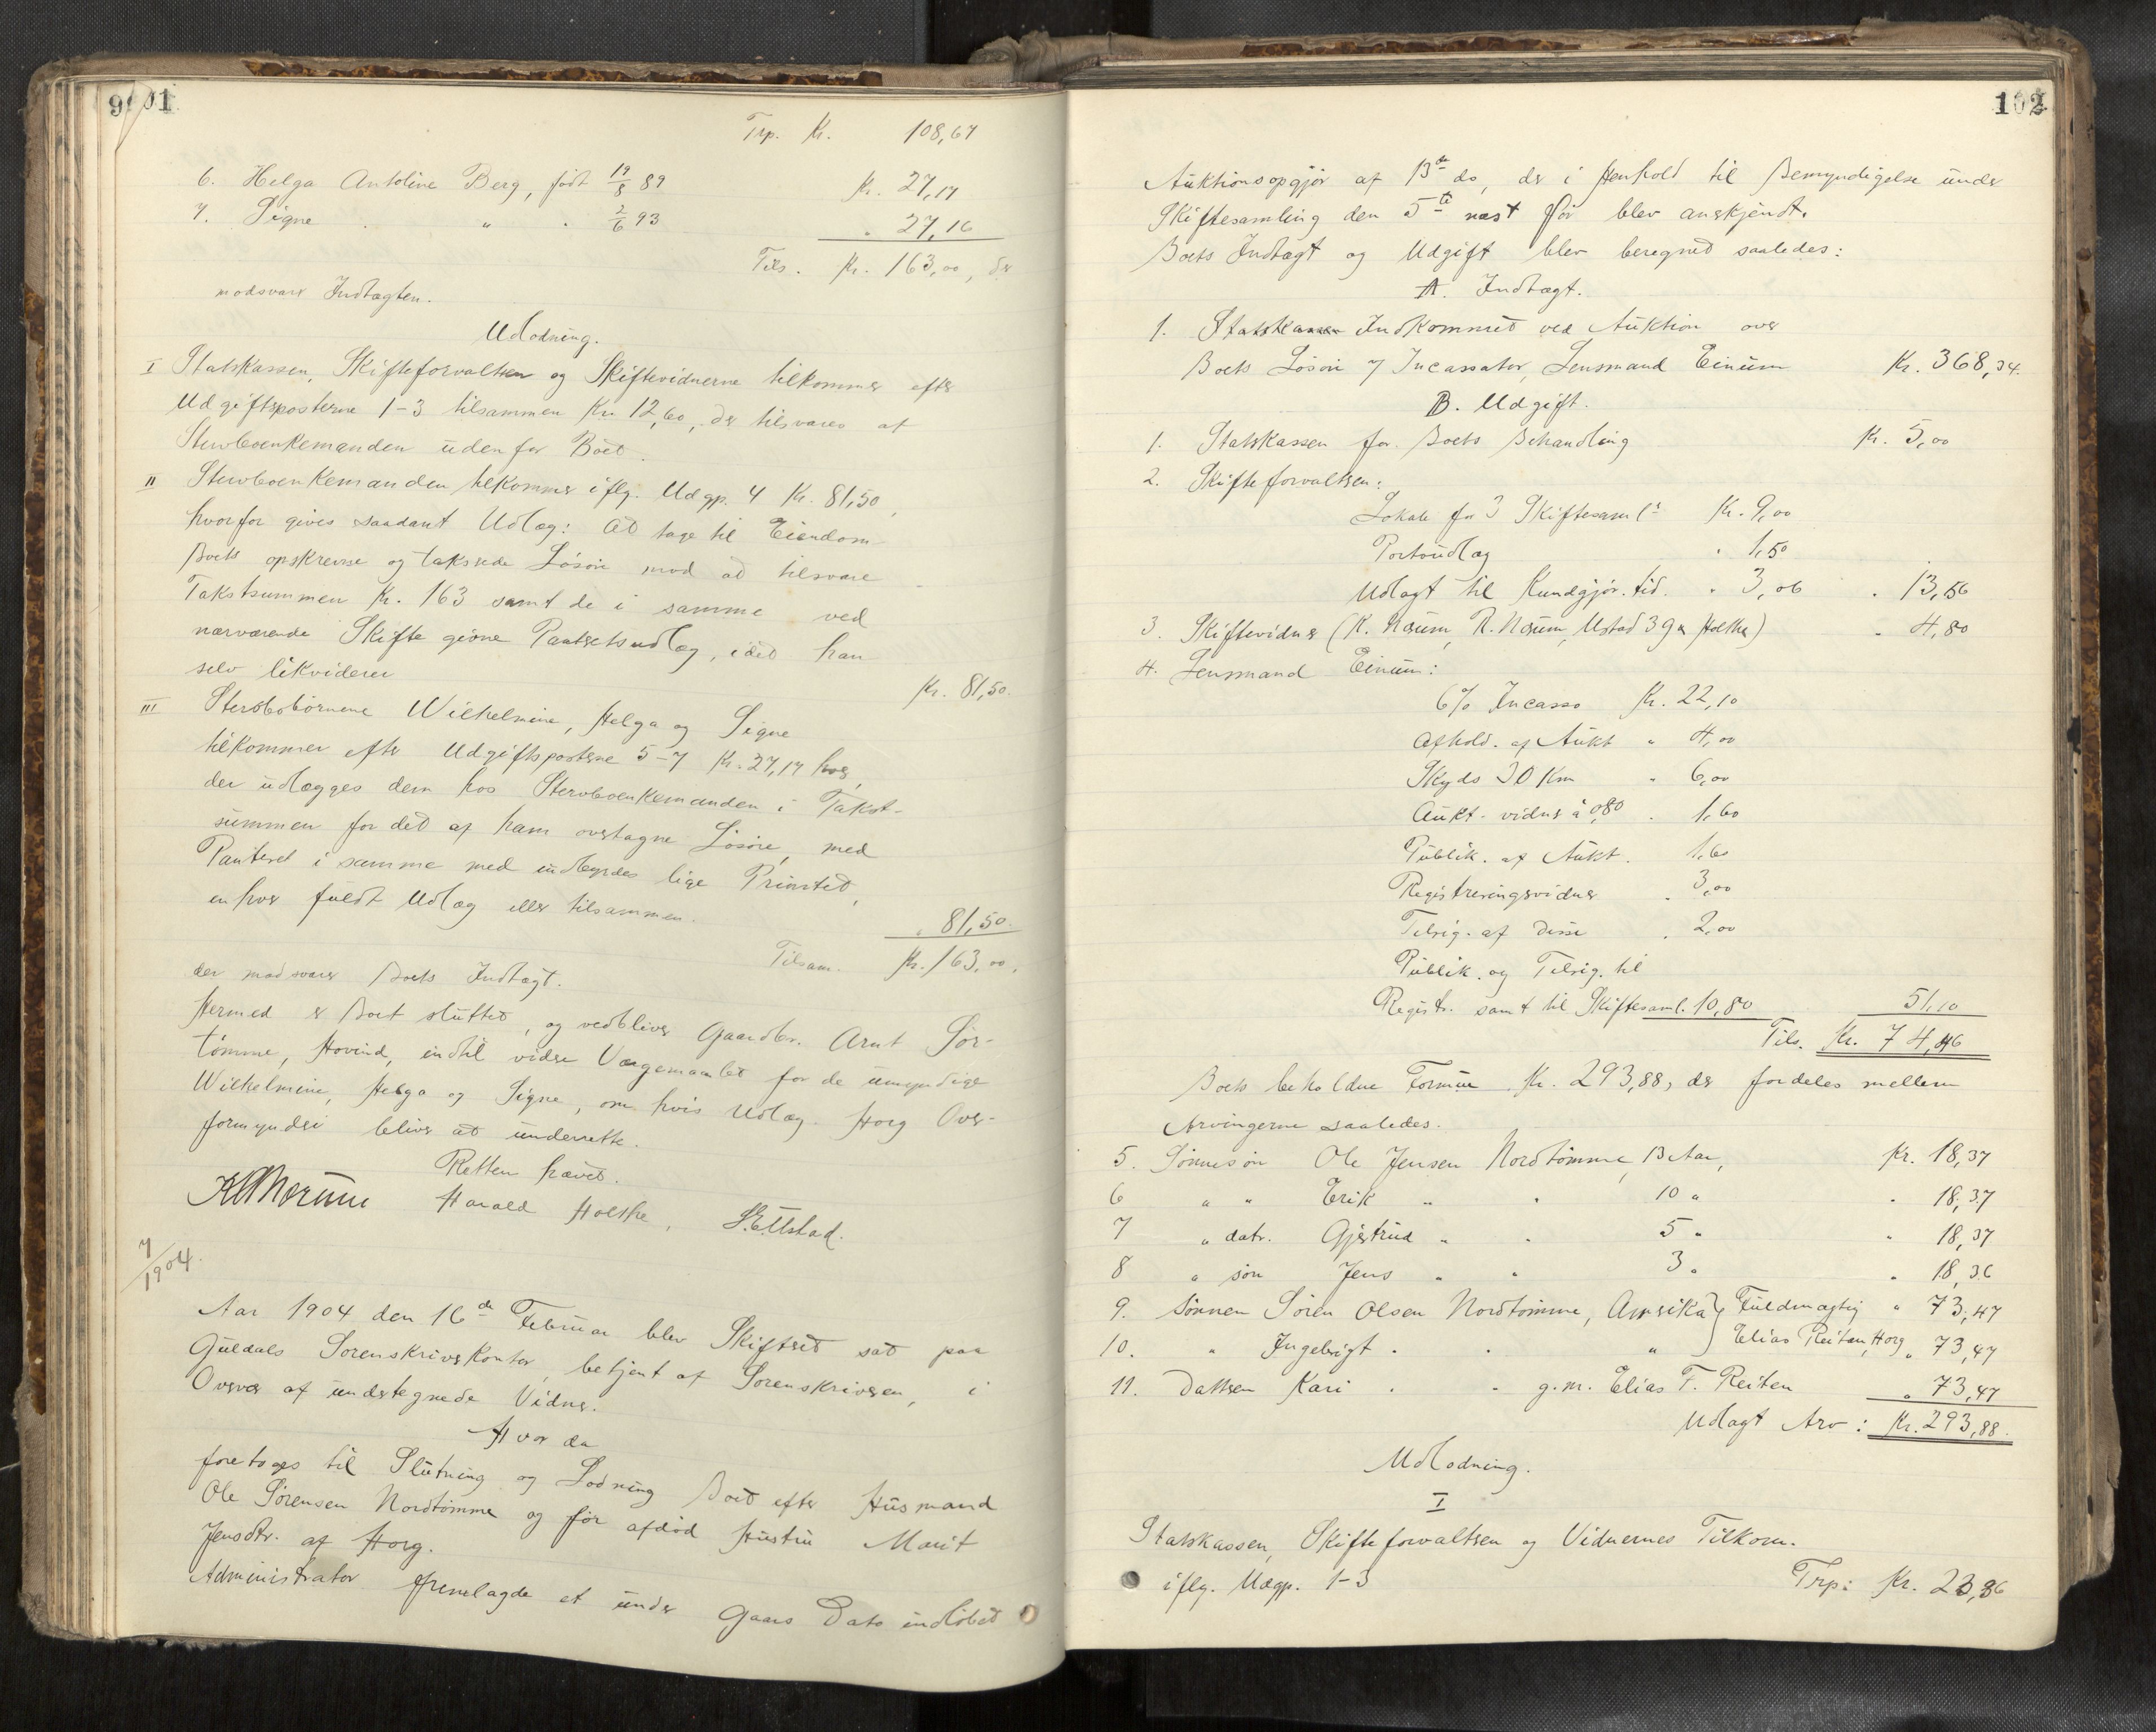 101
Trp. Kr. 108,67
6. Helga Antoline Berg, født 19/8 89 Kr. 27,17
7. Signe " " 2/6 93 " 27,16
Tils. Kr. 163,00, der
modsvarer Indtægten.
Udlodning.
I Statskassen, Skifteforvalteren og Skiftevidnerne tilkommer efter
Udgiftsposterne 1-3 tilsammen Kr. 12,60, der tilsvares af
Stervboenkemanden udenfor Boet.
II Stervboenkemanden tilkommer iflg. Udgp. 4 Kr. 81,50,
hvorfor gives saadant Udlæg: At tage til Eiendom
Boets opskrevne og takserede Løsøre mod at tilsvare
Takstsummen Kr. 163 samt de i samme ved
nærværende Skifte givne Panteretsudlæg, idet han
selv likviderer Kr. 81,50.
III Stervbobørnene Wilhelmine, Helga og Signe
tilkommer efter Udgiftsposterne 5-7 Kr. 27,17 hver,
der udlægges dem hos Stervboenkemanden i Takst-
summen for det af ham overtagne Løsøre, med
Panteret i samme med indbyrdes lige Prioritet,
enhver fuldt Udlæg eller tilsammen. " 81,50.
Tilsam. Kr. 163,00,
der modsvarer Boets Indtægt.
Hermed er Boet sluttet, og vedbliver Gaardbr. Arnt Sør-
tømme, Hovind, indtil videre Værgemaalet for de umyndige
Wilhelmine, Helga og Signe, om hvis Udlæg Horg Over-
formynderi bliver at underrette.
Retten hævet.
Harald Holthe, S. E. Ustad.
7/1904.
Aar 1904 den 16de Februar blev Skifteret sat paa
Guldals Sorenskriverkontor, betjent af Sorenskriveren, i
Overvær af undertegnede Vidner.
Hvor da
foretoges til Slutning og Lodning Boet efter Husmand
Ole Sørensen Nordtømme og før afdød Hustru Marit
Jensdtr. af Horg.
Administrator fremlagde et under Gaars Dato indløbet
102
Auktionsopgjør af 13de ds, der i Henhold til Bemyndigelse under
Skiftesamling den 5te næst før blev anskjendt.
Boets Indtægt og Udgift blev beregnet saaledes:
A. Indtægt.
1. Statskassen Indkommet ved Auktion over
Boets Løsøre / Incassator, Lensmand Einum Kr. 368,34.
B. Udgift.
1. Statskassen for Boets Behandling Kr. 5,00
2. Skifteforvalteren:
Lokale for 3 Skiftesaml. Kr. 9,00
Portoudlæg " 1,50
Udlagt til Kundgjør. tid. " 3,06 " 13,56
3. Skiftevidner (K. Næum, R. Næum, Ustad 3 G & Holthe) " 4,80
4. Lensmand Einum:
6% Incasso Kr. 22,10
Afhold. af Aukt " 4,00
Skyds 30 Km " 6,00
Aukt. vidner à 0,80 " 1,60
Publik. af Aukt. " 1,60
Registreringsvidner " 3,00
Tilsig. af disse " 2,00
Publik. og Tilsig. til
Registr. samt til Skiftesaml. 10,80 51,10
Tils. Kr. 74,46
Boets beholdne Formue Kr. 293,88, der fordeles mellem
Arvingerne saaledes.
5. Sønnesøn Ole Jensen Nordtømme, 13 Aar, Kr. 18,37
6 " " Erik " " 10 " " 18,37
7 " datr. Gjertrud " " 5 " " 18,37
8 " søn Jens " " 3 " " 18,36
9. Sønnen Søren Olsen Nordtømme, Amerika } Fuldmægtig " 73,47
10. " Ingebrigt " " " } Elias Reiten, Horg " 73,47
11. Datteren Kari " " g. m. Elias F. Reiten " 73,47
Udlagt Arv: Kr. 293,88.
Udlodning.
I
Statskassen, Skifteforvalteren og Vidnernes Tilkom.
iflg. Udgp. 1-3 Trp: Kr. 23,36